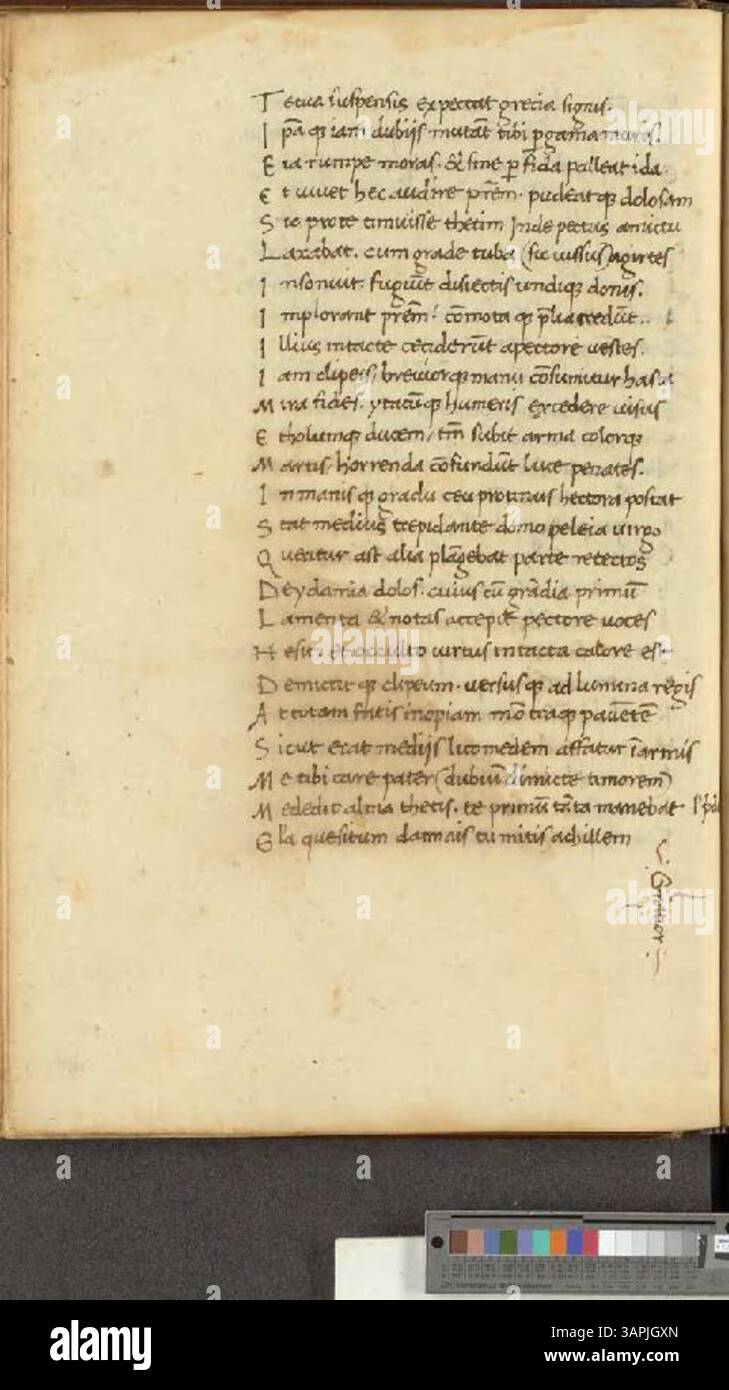 T ecua suspensis expectat grecia signis.
I pa q iam dubijs mutat tibi pgama muris.
E ia rumpe moras. & sine pfida palleat ida
E t iuvet hec audire prem. pudeatq dolosam
S ic pro te timuisse thetim Inde pectus amictu
L axabat. cum grade tuba (sic iussus) agirtes
I nsonuit. fugiut disiectis undiq donis.
I mplorant prem: comota q plia credut..
I llius intacte ceciderut a pectore vestes.
I am clipeus, breviorq manu consumitur hasta
M ira fides. ytacuq humeris excedere visus
E tholumq ducem, tm subit arma colorq
M artis, horrenda cofundut luce penates.
I nmanisq gradu ceu protinus hectora poscat
S tat medius trepidante domo peleia virgo
Q ueritur ast alia plagebat parte retectos
D eydamia dolos. cuius cu gradia primu
L amenta & notas accepit pectore voces
H esit. et occulto virtus intacta calore est.
D emictit q clipeum. versusq ad lumina regis
A ttonitum fatis inopiam mo traq pavete
S icut erat medijs licomedem affatur i armis
M e tibi care pater (dubium dimicte timorem)
M e dedit alma thetis. te primu tata manebat
G la quesitum danais tu mitis achillem
alamy
Image ID: 3APJGXN
www.alamy.com